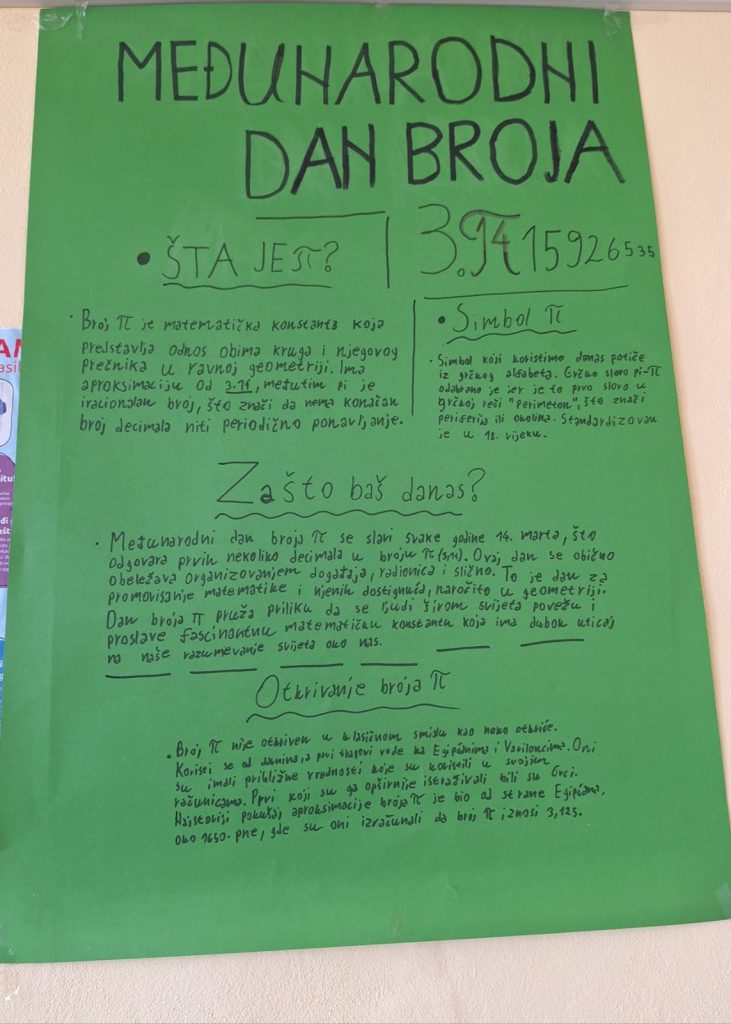 MEĐUNARODNI
DAN BROJA
• ŠTA JE π?
3.1415926535
π
• Broj π je matematička konstanta koja
predstavlja odnos obima kruga i njegovog
prečnika u ravnoj geometriji. Ima
aproksimaciju od 3.14, međutim pi je
iracionalan broj, što znači da nema konačan
broj decimala niti periodično ponavljanje.
• Simbol π
• Simbol koji koristimo danas potiče
iz grčkog alfabeta. Grčko slovo pi-π
odabrano je jer je to prvo slovo u
grčkoj reči "perimeton", što znači
periferija ili okolina. Standardizovan
je u 18. vijeku.
Zašto baš danas?
• Međunarodni dan broja π se slavi svake godine 14. marta, što
odgovara prvih nekoliko decimala u broju π (3,14). Ovaj dan se obično
obeležava organizovanjem događaja, radionica i slično. To je dan za
promovisanje matematike i njenih dostignuća, naročito u geometriji.
Dan broja π pruža priliku da se ljudi širom svijeta povežu i
proslave fascinantnu matematičku konstantu koja ima dubok uticaj
na naše razumevanje svijeta oko nas.
Otkrivanje broja π
• Broj π nije otkriven u klasičnom smislu kao neko otkriće.
Koristi se od davnina, a prvi tragovi vode ka Egipćanima i Vaviloncima. Oni
su imali približne vrednosti koje su koristili u svojim
računicama. Prvi koji su ga opširnije istraživali bili su Grci.
Najstariji pokušaj aproksimacije broja π je bio od strane Egipćana,
oko 1650. pne, gde su oni izračunali da broj π iznosi 3,125.